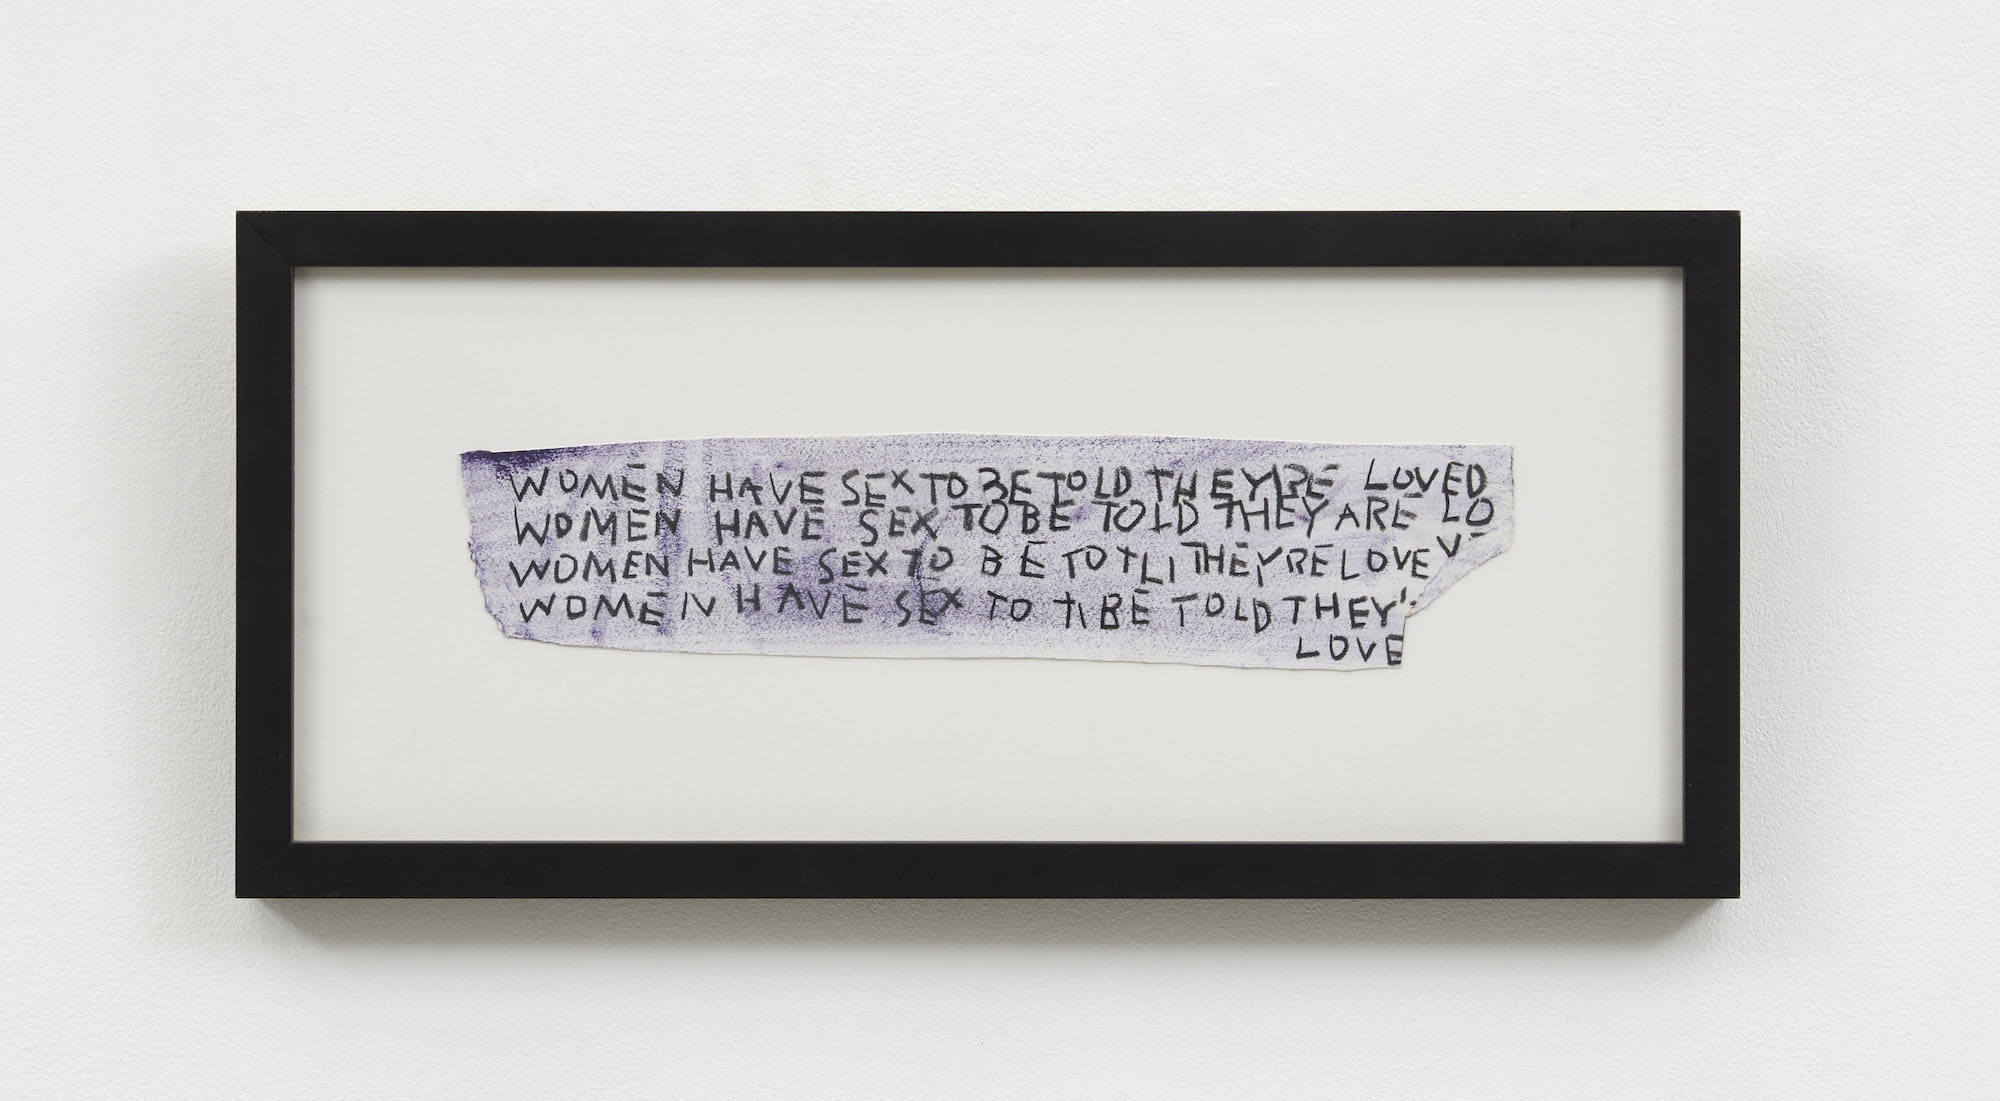 WOMEN HAVE SEX TO BE TOLD THEYRE LOVED
WOMEN HAVE SEX TO BE TOLD THEY ARE LO
WOMEN HAVE SEX TO BE TOTLI THEYRE LOVE
WOMEN HAVE SEX TO BE TOLD THEY'
LOVE